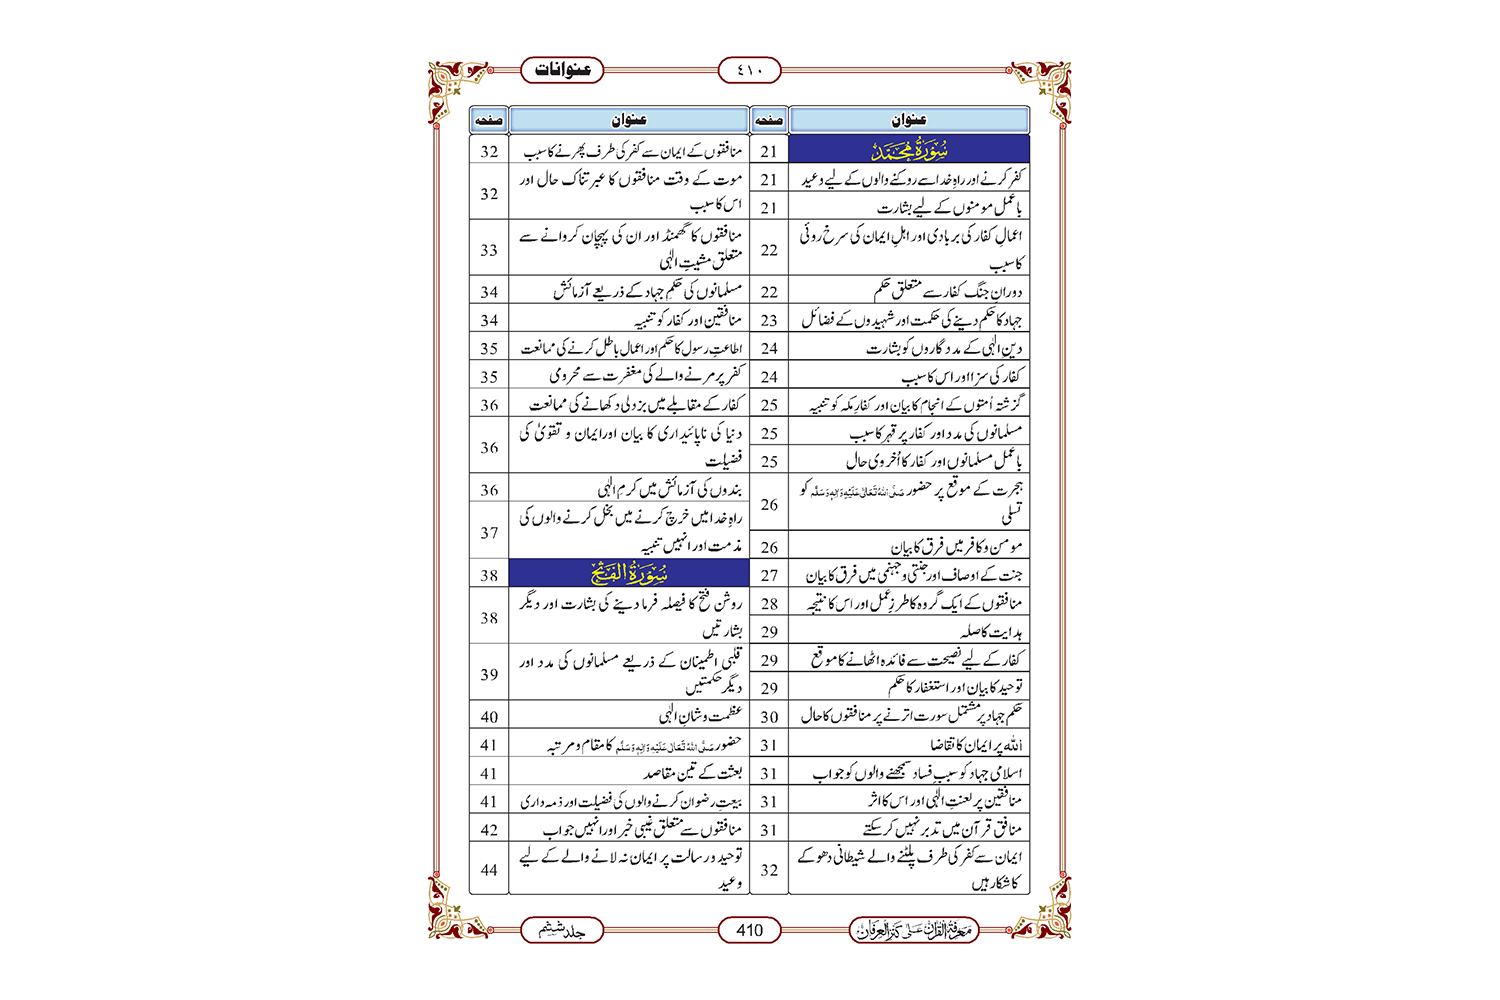 عنوانات
٤١٠
عنوان صفحہ
سُوْرَۃُ مُحَمَّد 21
کفر کرنے اور راہِ خدا سے روکنے والوں کے لیے وعید 21
باعمل مومنوں کے لیے بشارت 21
اعمالِ کفار کی بربادی اور اہلِ ایمان کی سرخ روئی
کا سبب 22
دورانِ جنگ کفار سے متعلق حکم 22
جہاد کا حکم دینے کی حکمت اور شہیدوں کے فضائل 23
دینِ الٰہی کے مددگاروں کو بشارت 24
کفار کی سزا اور اس کا سبب 24
گزشتہ اُمتوں کے انجام کا بیان اور کفارِ مکہ کو تنبیہ 25
مسلمانوں کی مدد اور کفار پر قہر کا سبب 25
باعمل مسلمانوں اور کفار کا اُخروی حال 25
ہجرت کے موقع پر حضور صَلَّی اللہُ تَعَالٰی عَلَیْہِ وَاٰلِہٖ وَسَلَّم کو
تسلی 26
مومن و کافر میں فرق کا بیان 26
جنت کے اوصاف اور جنتی و جہنمی میں فرق کا بیان 27
منافقوں کے ایک گروہ کا طرزِ عمل اور اس کا نتیجہ 28
ہدایت کا صلہ 29
کفار کے لیے نصیحت سے فائدہ اٹھانے کا موقع 29
توحید کا بیان اور استغفار کا حکم 29
حکم جہاد پر مشتمل سورت اترنے پر منافقوں کا حال 30
اللہ پر ایمان کا تقاضا 31
اسلامی جہاد کو سببِ فساد سمجھنے والوں کو جواب 31
منافقین پر لعنتِ الٰہی اور اس کا اثر 31
منافق قرآن میں تدبر نہیں کر سکتے 31
ایمان سے کفر کی طرف پلٹنے والے شیطانی دھوکے
کا شکار ہیں 32
عنوان صفحہ
منافقوں کے ایمان سے کفر کی طرف پھرنے کا سبب 32
موت کے وقت منافقوں کا عبرتناک حال اور
اس کا سبب 32
منافقوں کا گھمنڈ اور ان کی پہچان کروانے سے
متعلق مشیتِ الٰہی 33
مسلمانوں کی حکم جہاد کے ذریعے آزمائش 34
منافقین اور کفار کو تنبیہ 34
اطاعتِ رسول کا حکم اور اعمال باطل کرنے کی ممانعت 35
کفر پر مرنے والے کی مغفرت سے محرومی 35
کفار کے مقابلے میں بزدلی دکھانے کی ممانعت 36
دنیا کی ناپائیداری کا بیان اور ایمان و تقویٰ کی
فضیلت 36
بندوں کی آزمائش میں کرمِ الٰہی 36
راہِ خدا میں خرچ کرنے میں بخل کرنے والوں کی
مذمت اور انہیں تنبیہ 37
سُوْرَۃُ الْفَتْح 38
روشن فتح کا فیصلہ فرما دینے کی بشارت اور دیگر
بشارتیں 38
قلبی اطمینان کے ذریعے مسلمانوں کی مدد اور
دیگر حکمتیں 39
عظمت و شانِ الٰہی 40
حضور صَلَّی اللہُ تَعَالٰی عَلَیْہِ وَاٰلِہٖ وَسَلَّم کا مقام و مرتبہ 41
بعثت کے تین مقاصد 41
بیعتِ رضوان کرنے والوں کی فضیلت اور ذمہ داری 41
منافقوں سے متعلق غیبی خبر اور انہیں جواب 42
توحید و رسالت پر ایمان نہ لانے والے کے لیے
وعید 44
معرفۃ القرآن علی کنز العرفان
410
جلد ششم